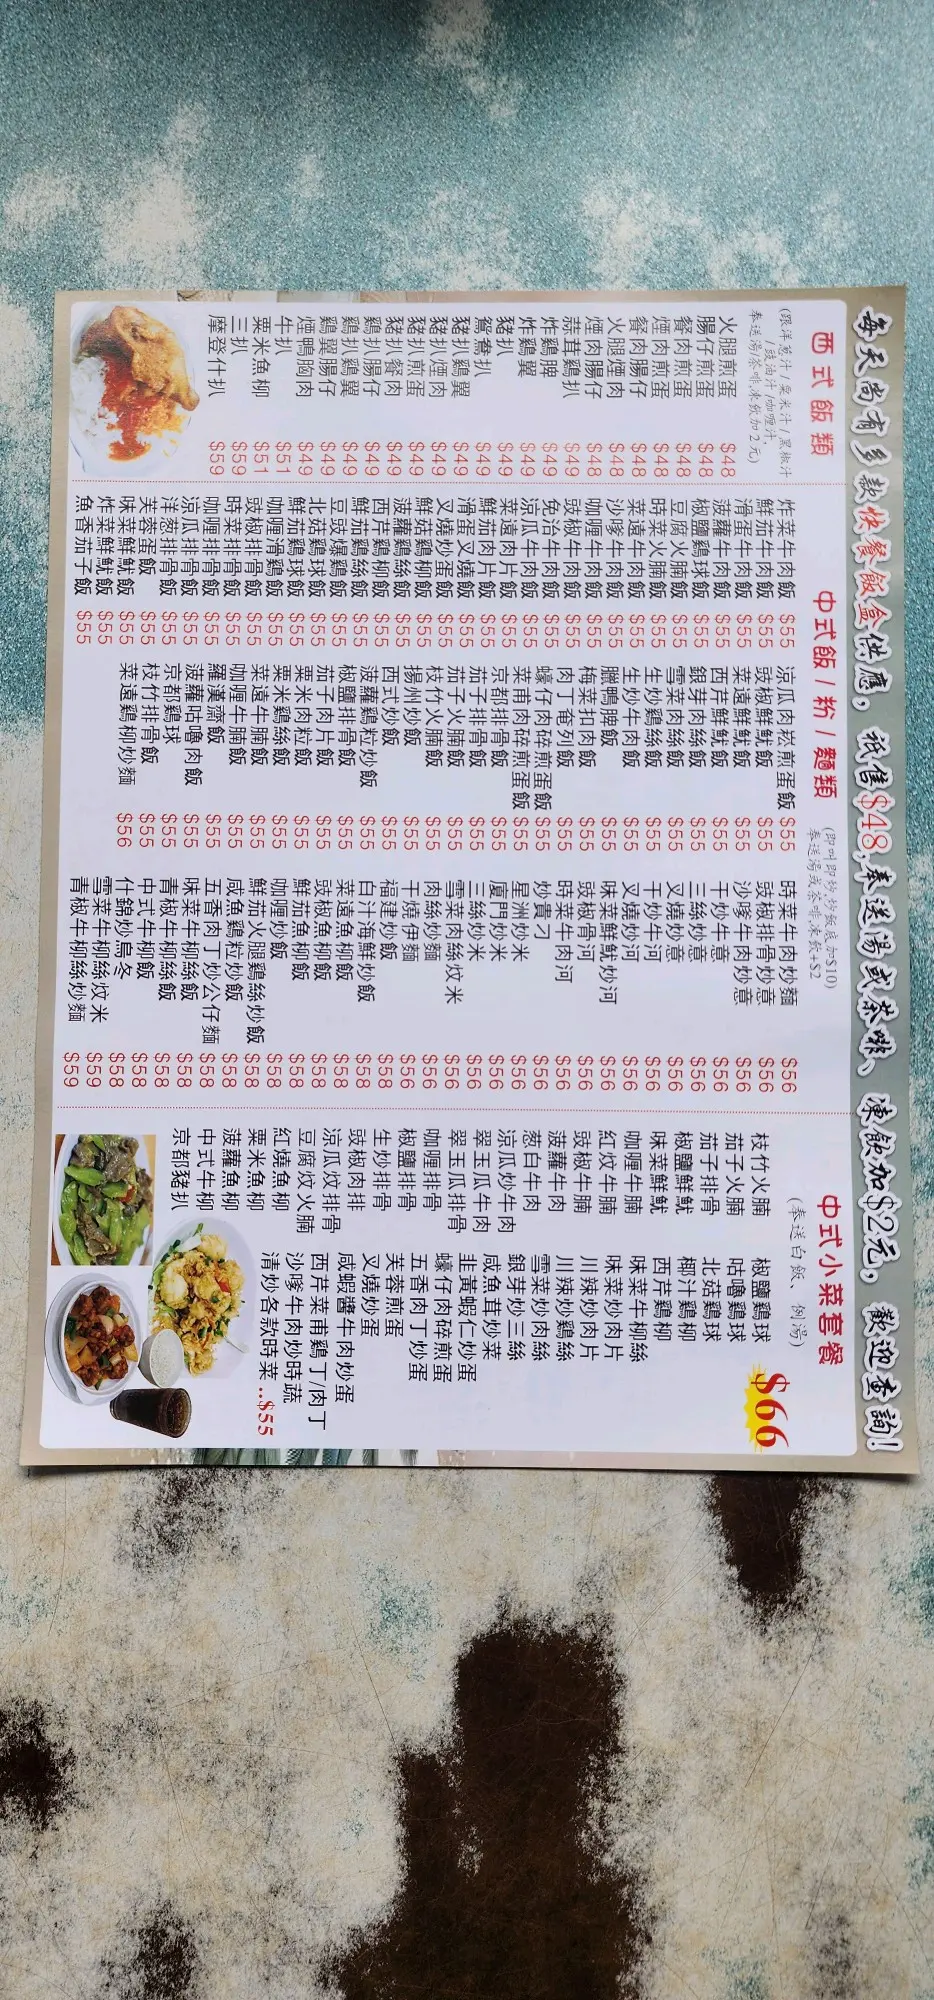 每天尚有多款快餐飯盒供應，祇售$48,奉送湯或茶啡、凍飲加$2元，歡迎查詢!
西式飯類
(跟洋葱汁/粟米汁/黑椒汁
/豉油汁/咖喱汁,
奉送湯/茶啡,凍飲加2元)
火腿煎蛋 $48
腸仔煎蛋 $48
餐肉煎蛋 $48
煙肉煎蛋 $48
餐肉腸仔 $48
火腿煙肉 $48
煙肉腸仔 $48
蒜茸鷄扒 $49
炸鷄脾 $49
炸鷄翼 $49
豬扒 $49
鴛鴦扒 $49
豬扒鷄翼 $49
豬扒煙肉 $49
豬扒煎蛋 $49
豬扒餐肉 $49
鷄扒腸仔 $49
鷄扒鷄翼 $49
鷄翼腸仔 $49
煙鴨胸肉 $49
牛扒 $51
粟米魚柳 $51
三扒 $59
摩登什扒 $59
中式飯/粉/麵類
(即叫即炒炒飯底加$10)
奉送湯或茶啡凍飲+$2
炸菜牛肉飯 $55
鮮茄牛肉飯 $55
滑蛋牛肉飯 $55
菠蘿牛肉飯 $55
椒鹽鷄球飯 $55
豆腐火腩飯 $55
時菜火腩飯 $55
菜遠牛肉飯 $55
沙嗲牛肉飯 $55
咖喱牛肉飯 $55
豉椒牛肉飯 $55
免治牛肉飯 $55
涼瓜牛肉飯 $55
菜遠肉片飯 $55
鮮茄肉片飯 $55
滑蛋叉燒飯 $55
叉燒炒蛋飯 $55
鮮菇鷄柳飯 $55
菠蘿鷄絲飯 $55
西芹鷄柳飯 $55
鮮茄鷄絲飯 $55
豆豉爆鷄飯 $55
北菇鷄球飯 $55
鮮茄鷄球飯 $55
咖喱滑鷄飯 $55
豉椒排骨飯 $55
時菜排骨飯 $55
咖喱排骨飯 $55
涼瓜排骨飯 $55
洋葱排骨飯 $55
芙蓉蛋飯 $55
味菜鮮魷飯 $55
炸菜鮮魷飯 $55
魚香茄子飯 $55
涼瓜肉崧煎蛋飯 $55
豉椒鮮魷飯 $55
菜遠鮮魷飯 $55
西芹鮮魷飯 $55
銀芽肉絲飯 $55
雪菜肉絲飯 $55
生炒鷄絲飯 $55
生炒牛肉飯 $55
臘鴨脾飯 $55
梅菜扣肉飯 $55
肉丁奄列飯 $55
蠔仔肉碎煎蛋飯 $55
菜甫肉碎煎蛋飯 $55
京都排骨飯 $55
茄子排骨飯 $55
茄子火腩飯 $55
枝竹火腩飯 $55
揚州炒飯 $55
西式炒飯 $55
菠蘿鷄粒炒飯 $55
椒鹽排骨飯 $55
茄子肉片飯 $55
粟米肉粒飯 $55
粟米鷄絲飯 $55
菜遠牛腩飯 $55
咖喱牛腩飯 $55
羅漢齋飯 $55
菠蘿咕嚕肉飯 $55
京都鷄球 $55
枝竹排骨飯 $55
菜遠鷄柳炒麵 $56
時菜牛肉炒麵 $56
豉椒排骨炒意 $56
沙嗲牛肉炒意 $56
干炒牛意 $56
三絲炒意 $56
叉燒炒意 $56
干炒牛河 $56
叉燒炒河 $56
味菜鮮魷炒河 $56
豉椒排骨河 $56
時菜牛肉河 $56
炒貴刁 $56
星洲炒米 $56
廈門炒米 $56
三絲炒米 $56
雪菜肉絲炆米 $56
肉絲炒麵 $56
干燒伊麵 $56
福建炒飯 $58
白汁海鮮炒飯 $58
菜遠魚柳飯 $58
豉椒魚柳飯 $58
鮮茄魚柳飯 $58
咖喱炒飯 $58
鮮茄火腿鷄絲炒飯 $58
咸魚鷄粒炒飯 $58
五香肉丁炒公仔麵 $58
味菜牛柳絲飯 $58
青椒牛柳絲飯 $58
中式牛柳飯 $58
什錦炒烏冬 $58
雪菜牛柳絲炆米 $59
青椒牛柳絲炒麵 $59
中式小菜套餐
(奉送白飯、例湯)
$66
枝竹火腩
茄子火腩
茄子排骨
椒鹽鮮魷
味菜鮮魷
咖喱牛腩
紅炆牛腩
豉椒牛腩
菠蘿牛肉
葱白牛肉
涼瓜炒牛肉
翠玉瓜牛肉
翠玉瓜排骨
咖喱排骨
椒鹽排骨
生炒排骨
豉椒肉排
涼瓜炆排骨
豆腐炆火腩
紅燒魚柳
粟米魚柳
菠蘿魚柳
中式牛柳
京都豬扒
椒鹽鷄球
咕嚕鷄球
北菇鷄球
椰汁鷄柳
西芹鷄柳
味菜牛柳絲
味菜炒肉片
川辣炒肉片
川辣炒鷄絲
雪菜炒肉絲
銀芽炒三絲
咸魚茸炒菜
韭黃蝦仁炒蛋
蠔仔肉碎煎蛋
五香肉丁炒蛋
芙蓉煎蛋
叉燒炒蛋
咸蝦醬牛肉炒蛋
西芹菜甫鷄丁/肉丁
沙嗲牛肉炒時蔬
清炒各款時菜...$55